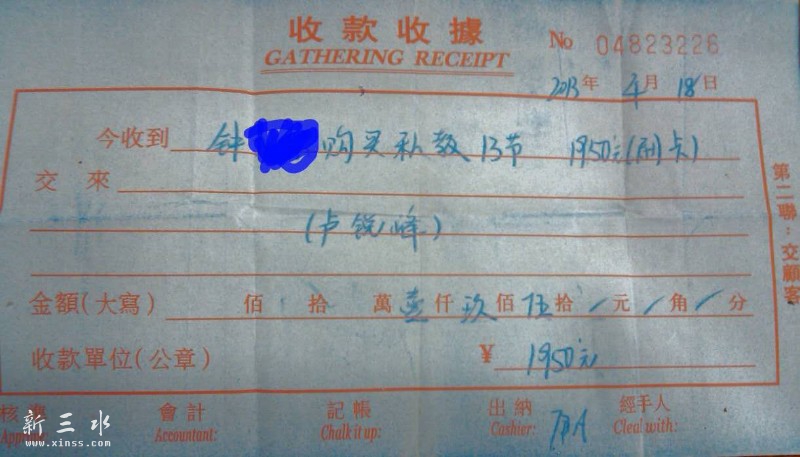 收款收據
GATHERING RECEIPT
No 04823226
2013年 4月 18日
今收到 钟 购买私教13节 1950元(刷卡)
交來
(卢锐峰)
金額(大寫) 佰 拾 萬 壹仟 玖佰 伍拾 / 元 / 角 / 分
收款單位(公章) ¥ 1950元
第二聯:交顧客
核准 會計 記帳 出納 經手人
Accountant: Chalk it up: Cashier: Cleal with:
新三水
www.xinss.com